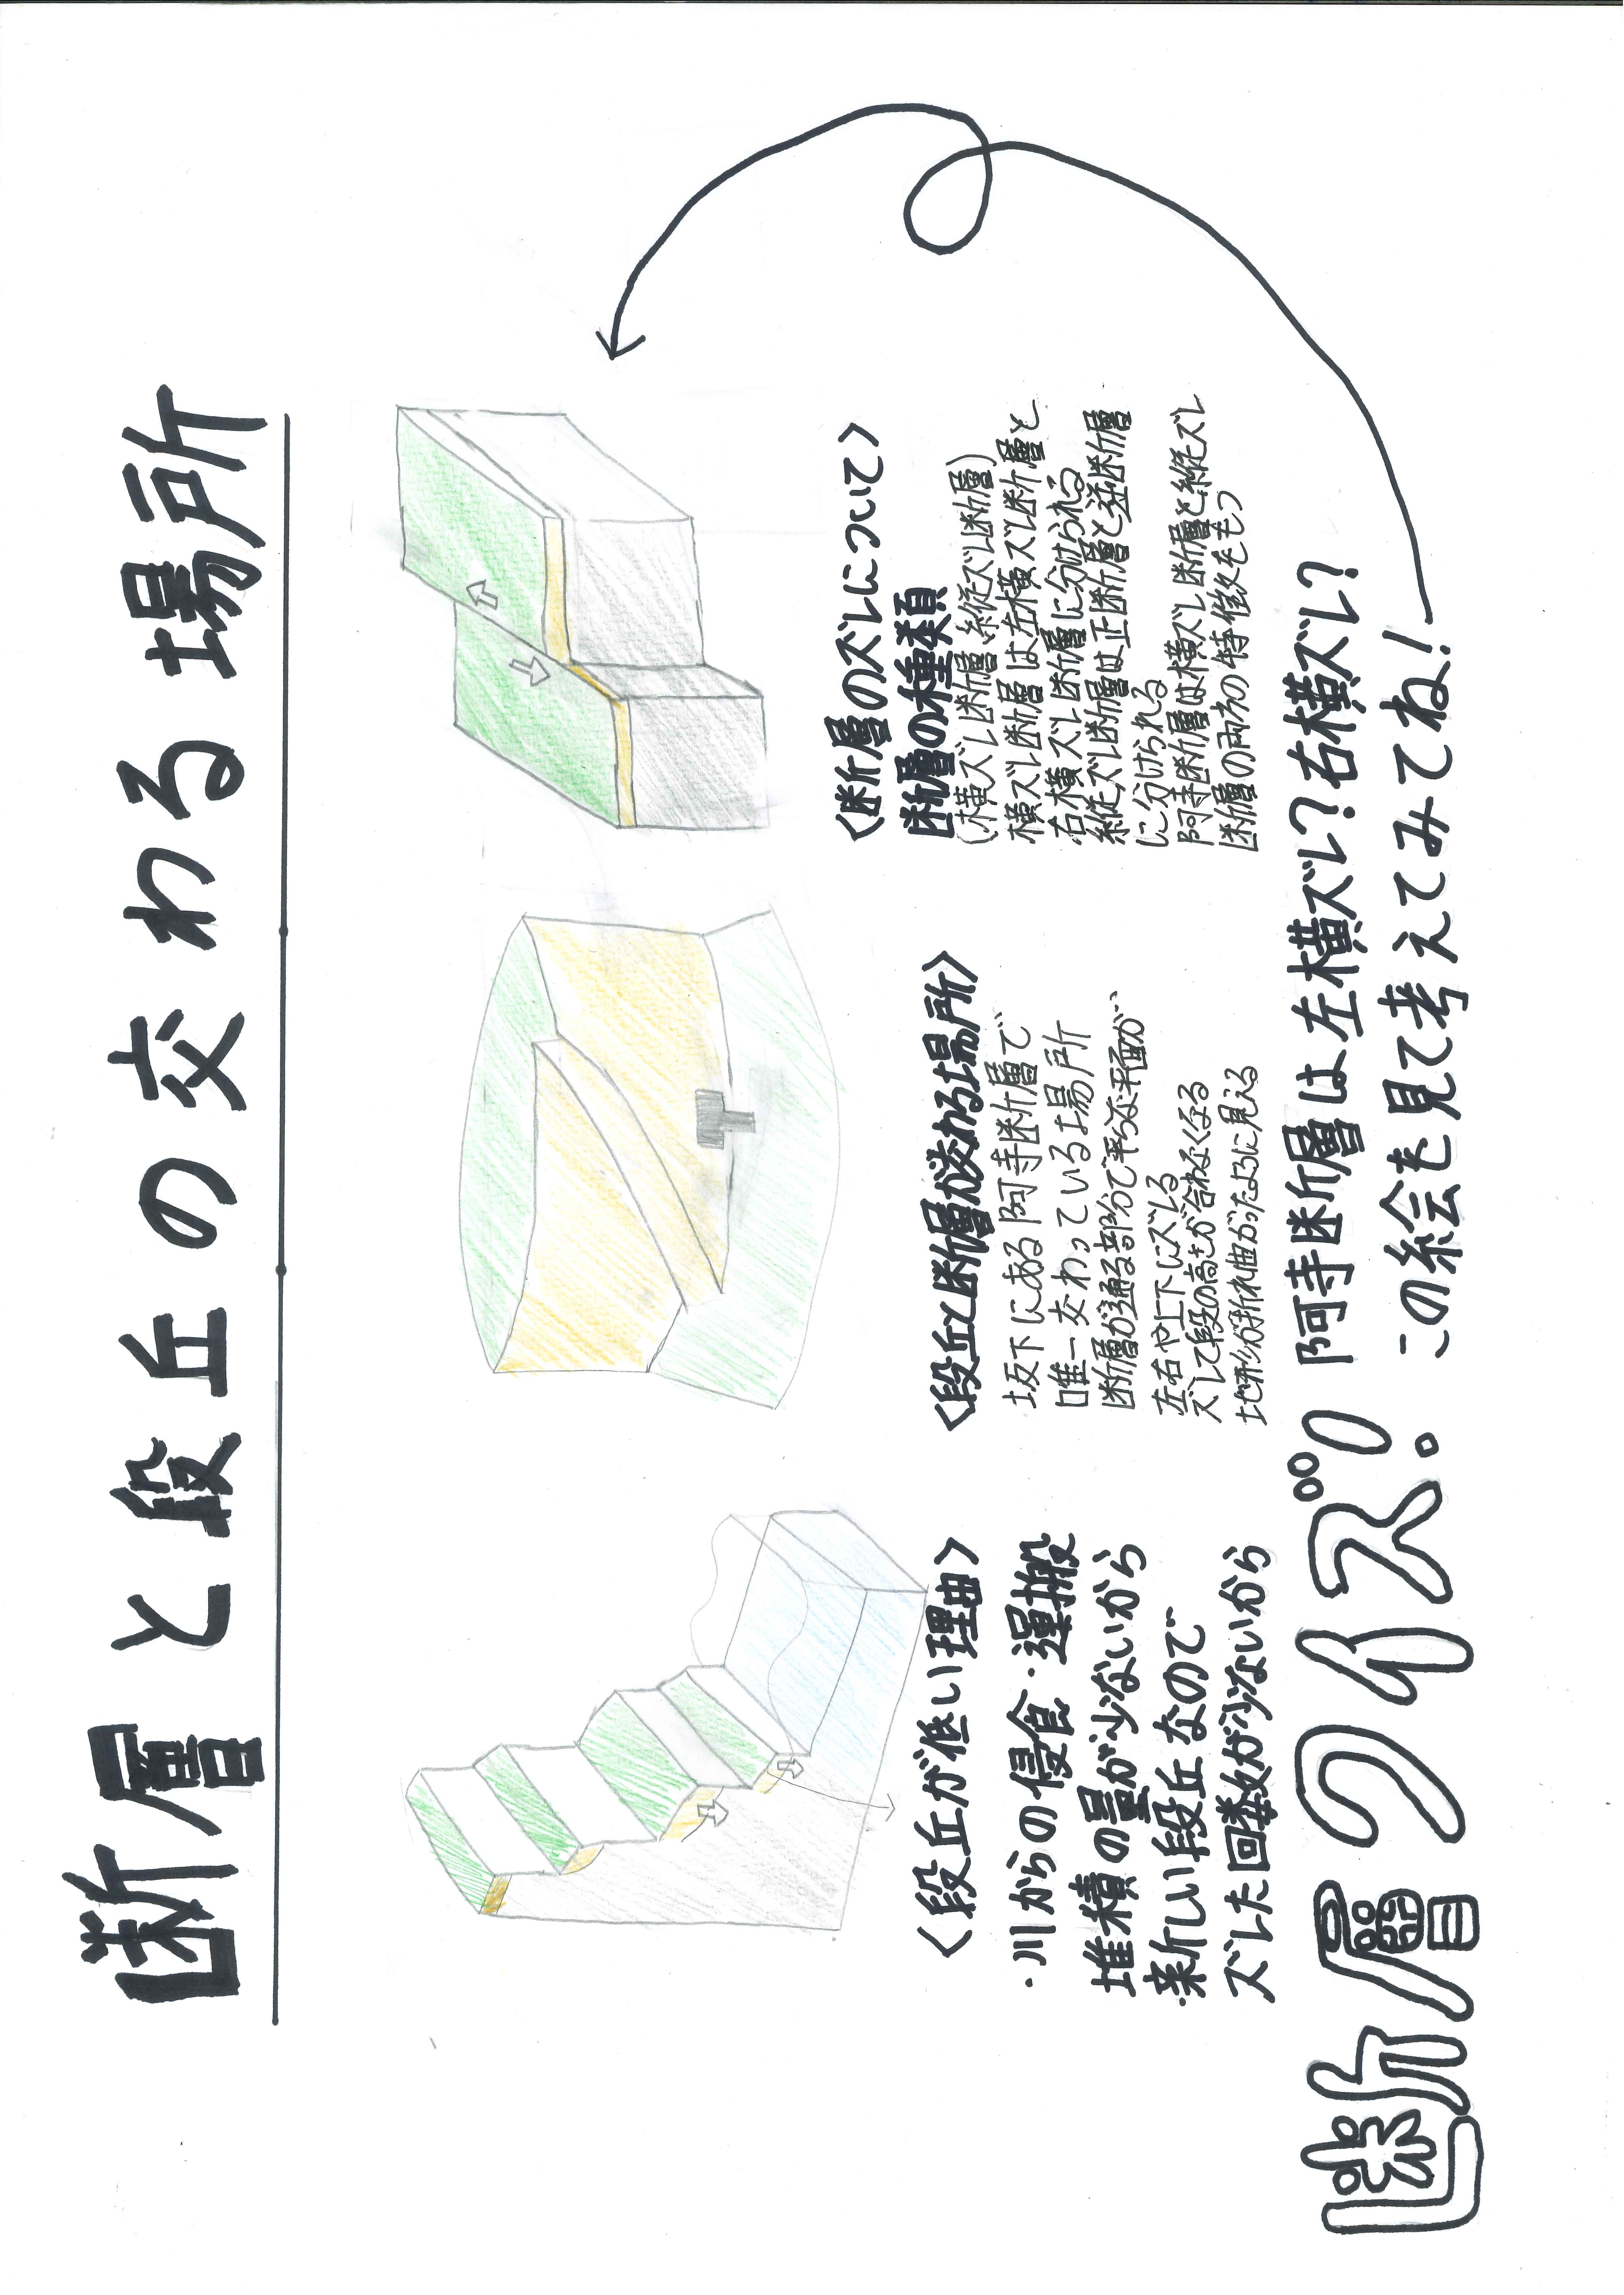 断層と段丘の交わる場所
〈段丘が低い理由〉
・川からの侵食・運搬
堆積の量が少ないから
・新しい段丘なので
ズレた回数が少ないから
〈段丘と断層が交わる場所〉
坂下にある阿寺断層で
唯一交わっている場所
断層が通る部分で平らな平面が
左右や上下にズレる
ズレて段の高さが合わなくなる
地形が折れ曲がったように見える
〈断層のズレについて〉
断層の種類
(横ズレ断層、縦ズレ断層)
横ズレ断層は左横ズレ断層と
右横ズレ断層に分けられる
縦ズレ断層は正断層と逆断層
に分けられる
阿寺断層は横ズレ断層と縦ズレ
断層の両方の特徴をもつ
断層クイズ!。
阿寺断層は左横ズレ?右横ズレ?
この絵を見て考えてみてね!